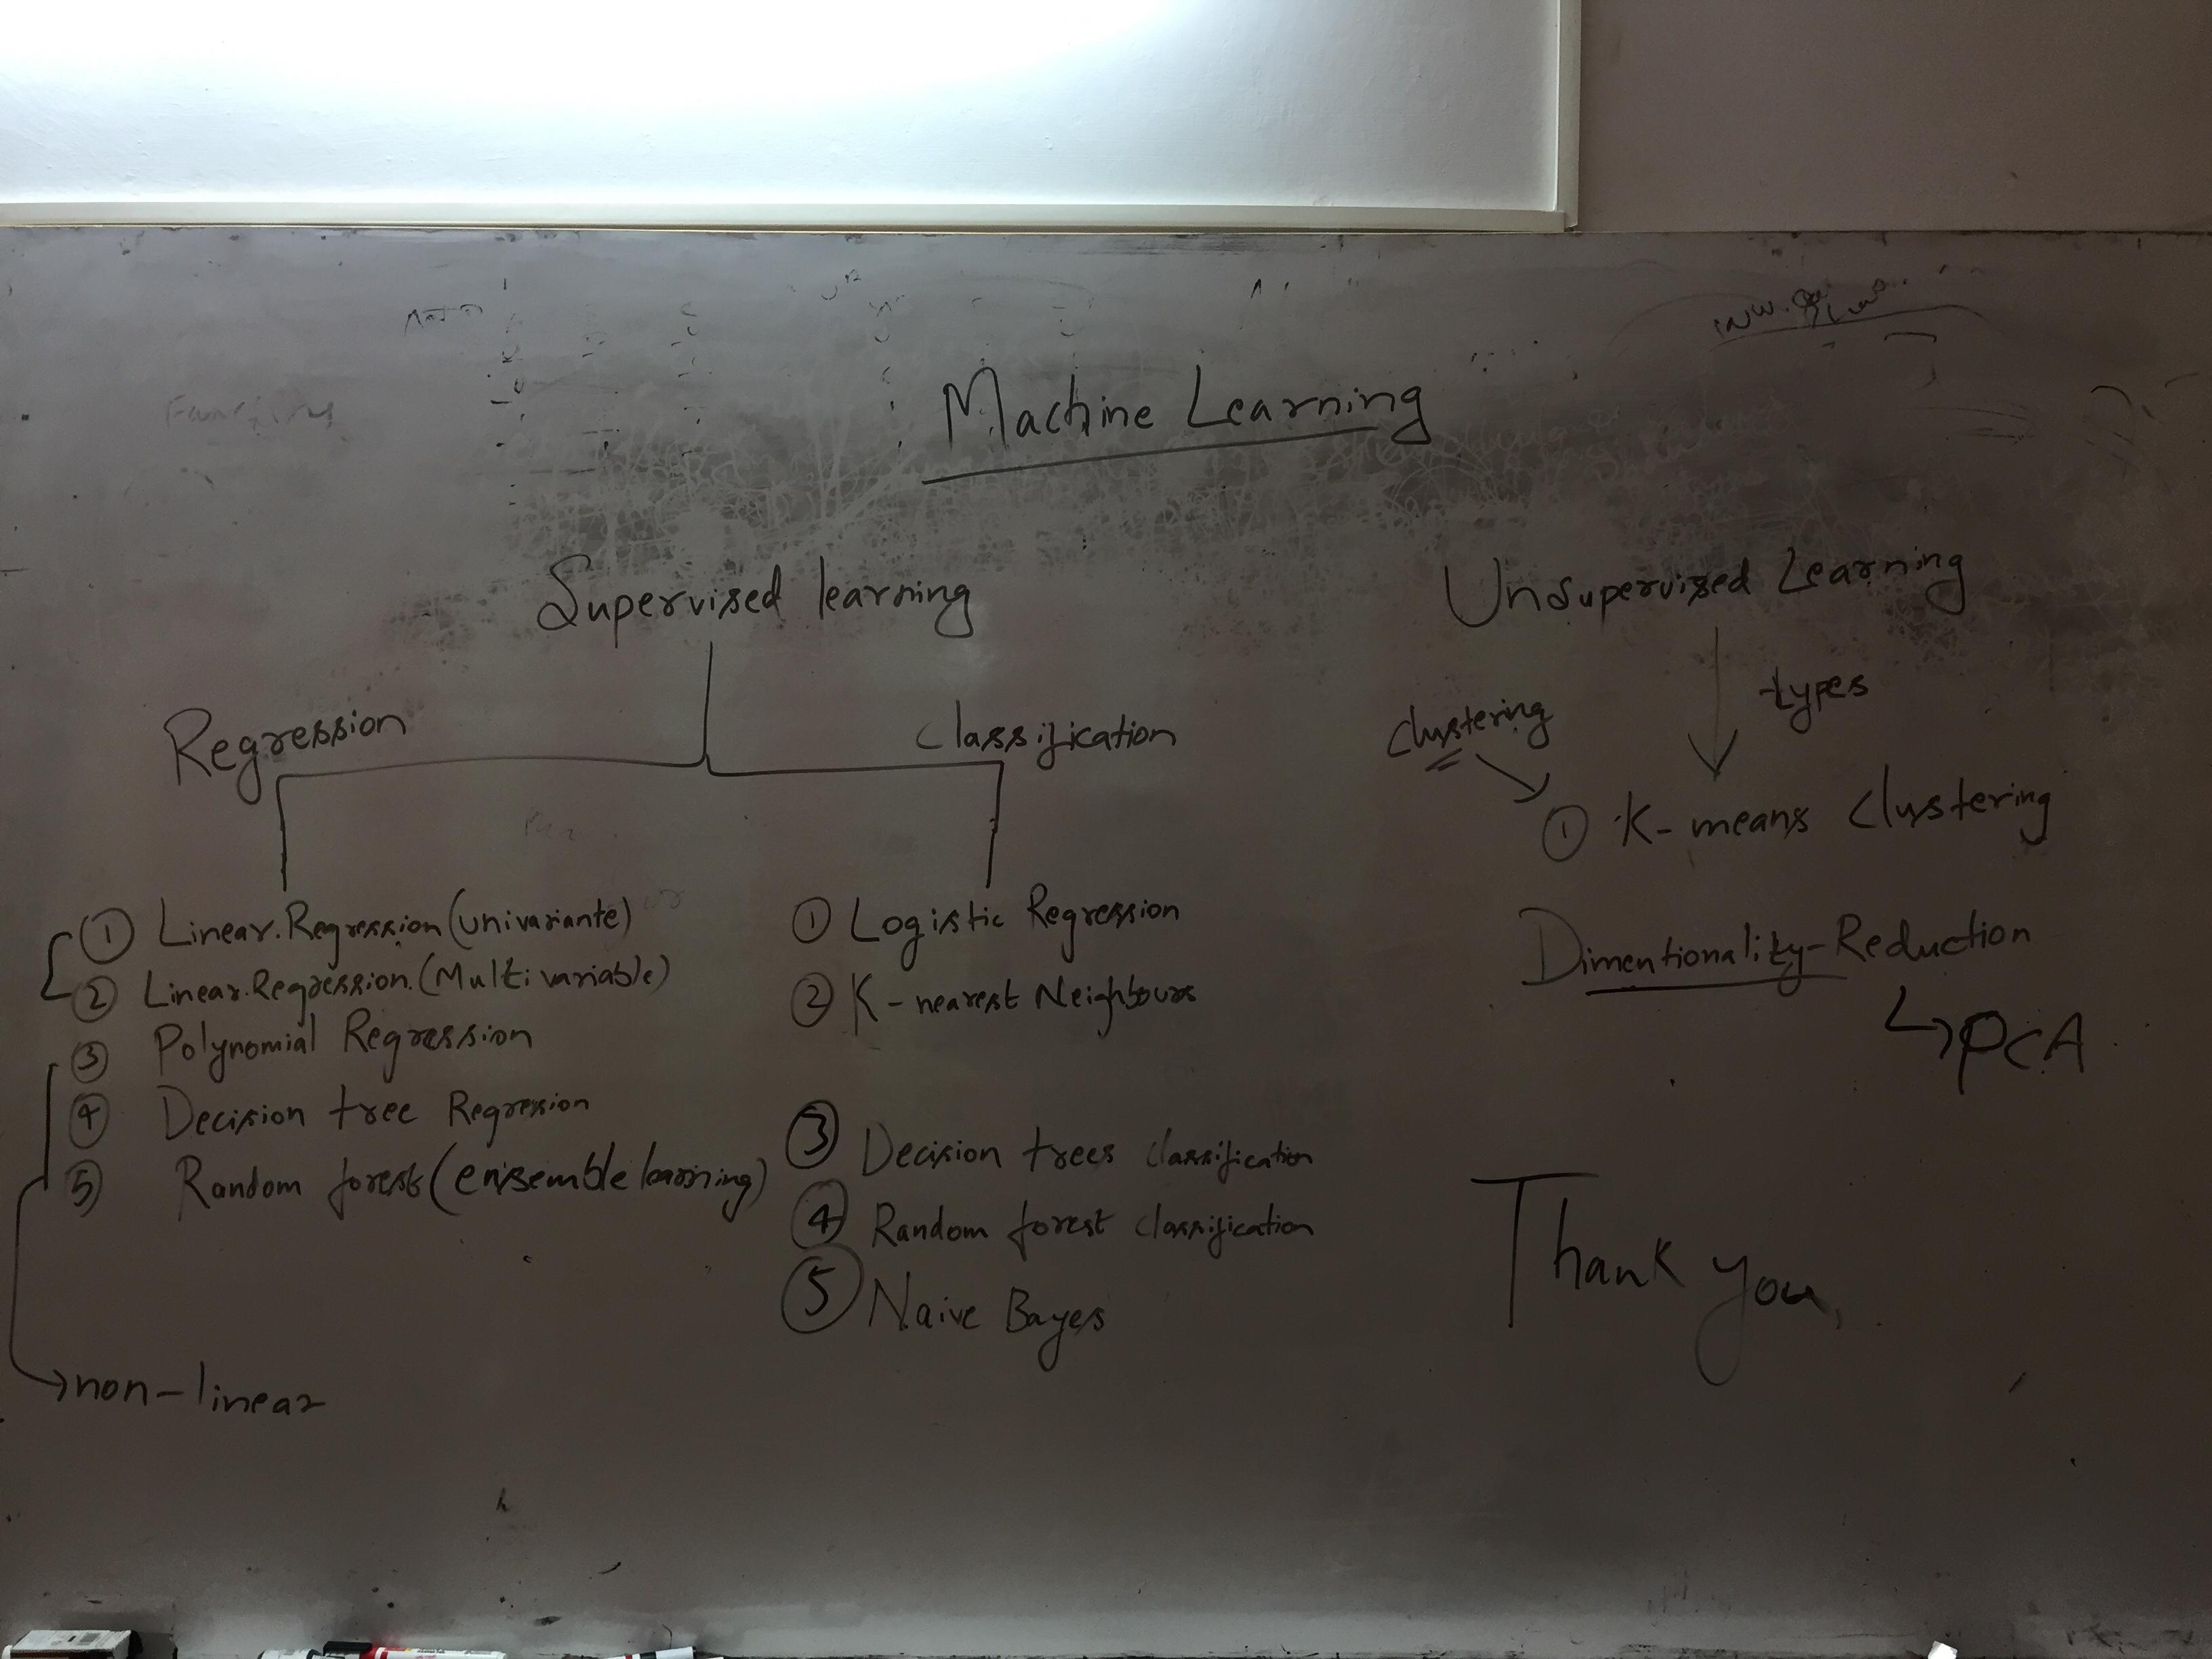 Machine Learning
Supervised learning
Regression
Classification
① Linear Regression (univariante)
② Linear Regression (Multi variable)
③ Polynomial Regression
④ Decision tree Regression
⑤ Random forest (ensemble learning)
→ non-linear
① Logistic Regression
② K-nearest Neighbours
③ Decision trees classification
④ Random forest classification
⑤ Naive Bayes
Unsupervised Learning
types
clustering
① K-means clustering
Dimentionality-Reduction
PCA
Thank you